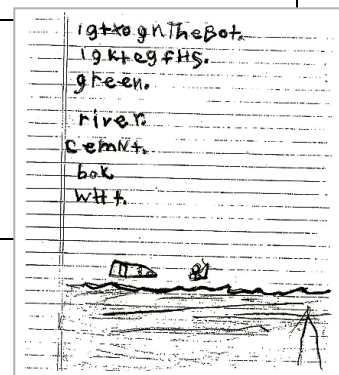 igtxognTheBot.
igktegfHS.
green.
river.
cemNt.
bok
wHt.